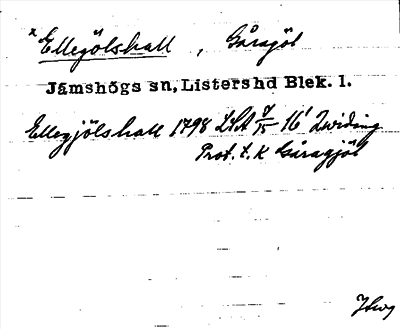 x Ellegölshall, Gåragöl
Jämshögs sn, Listershd Blek. l.
Ellegjölshall 1798 LSA 7/15 16' Qwiding
Prot. t. K Gåragjöl